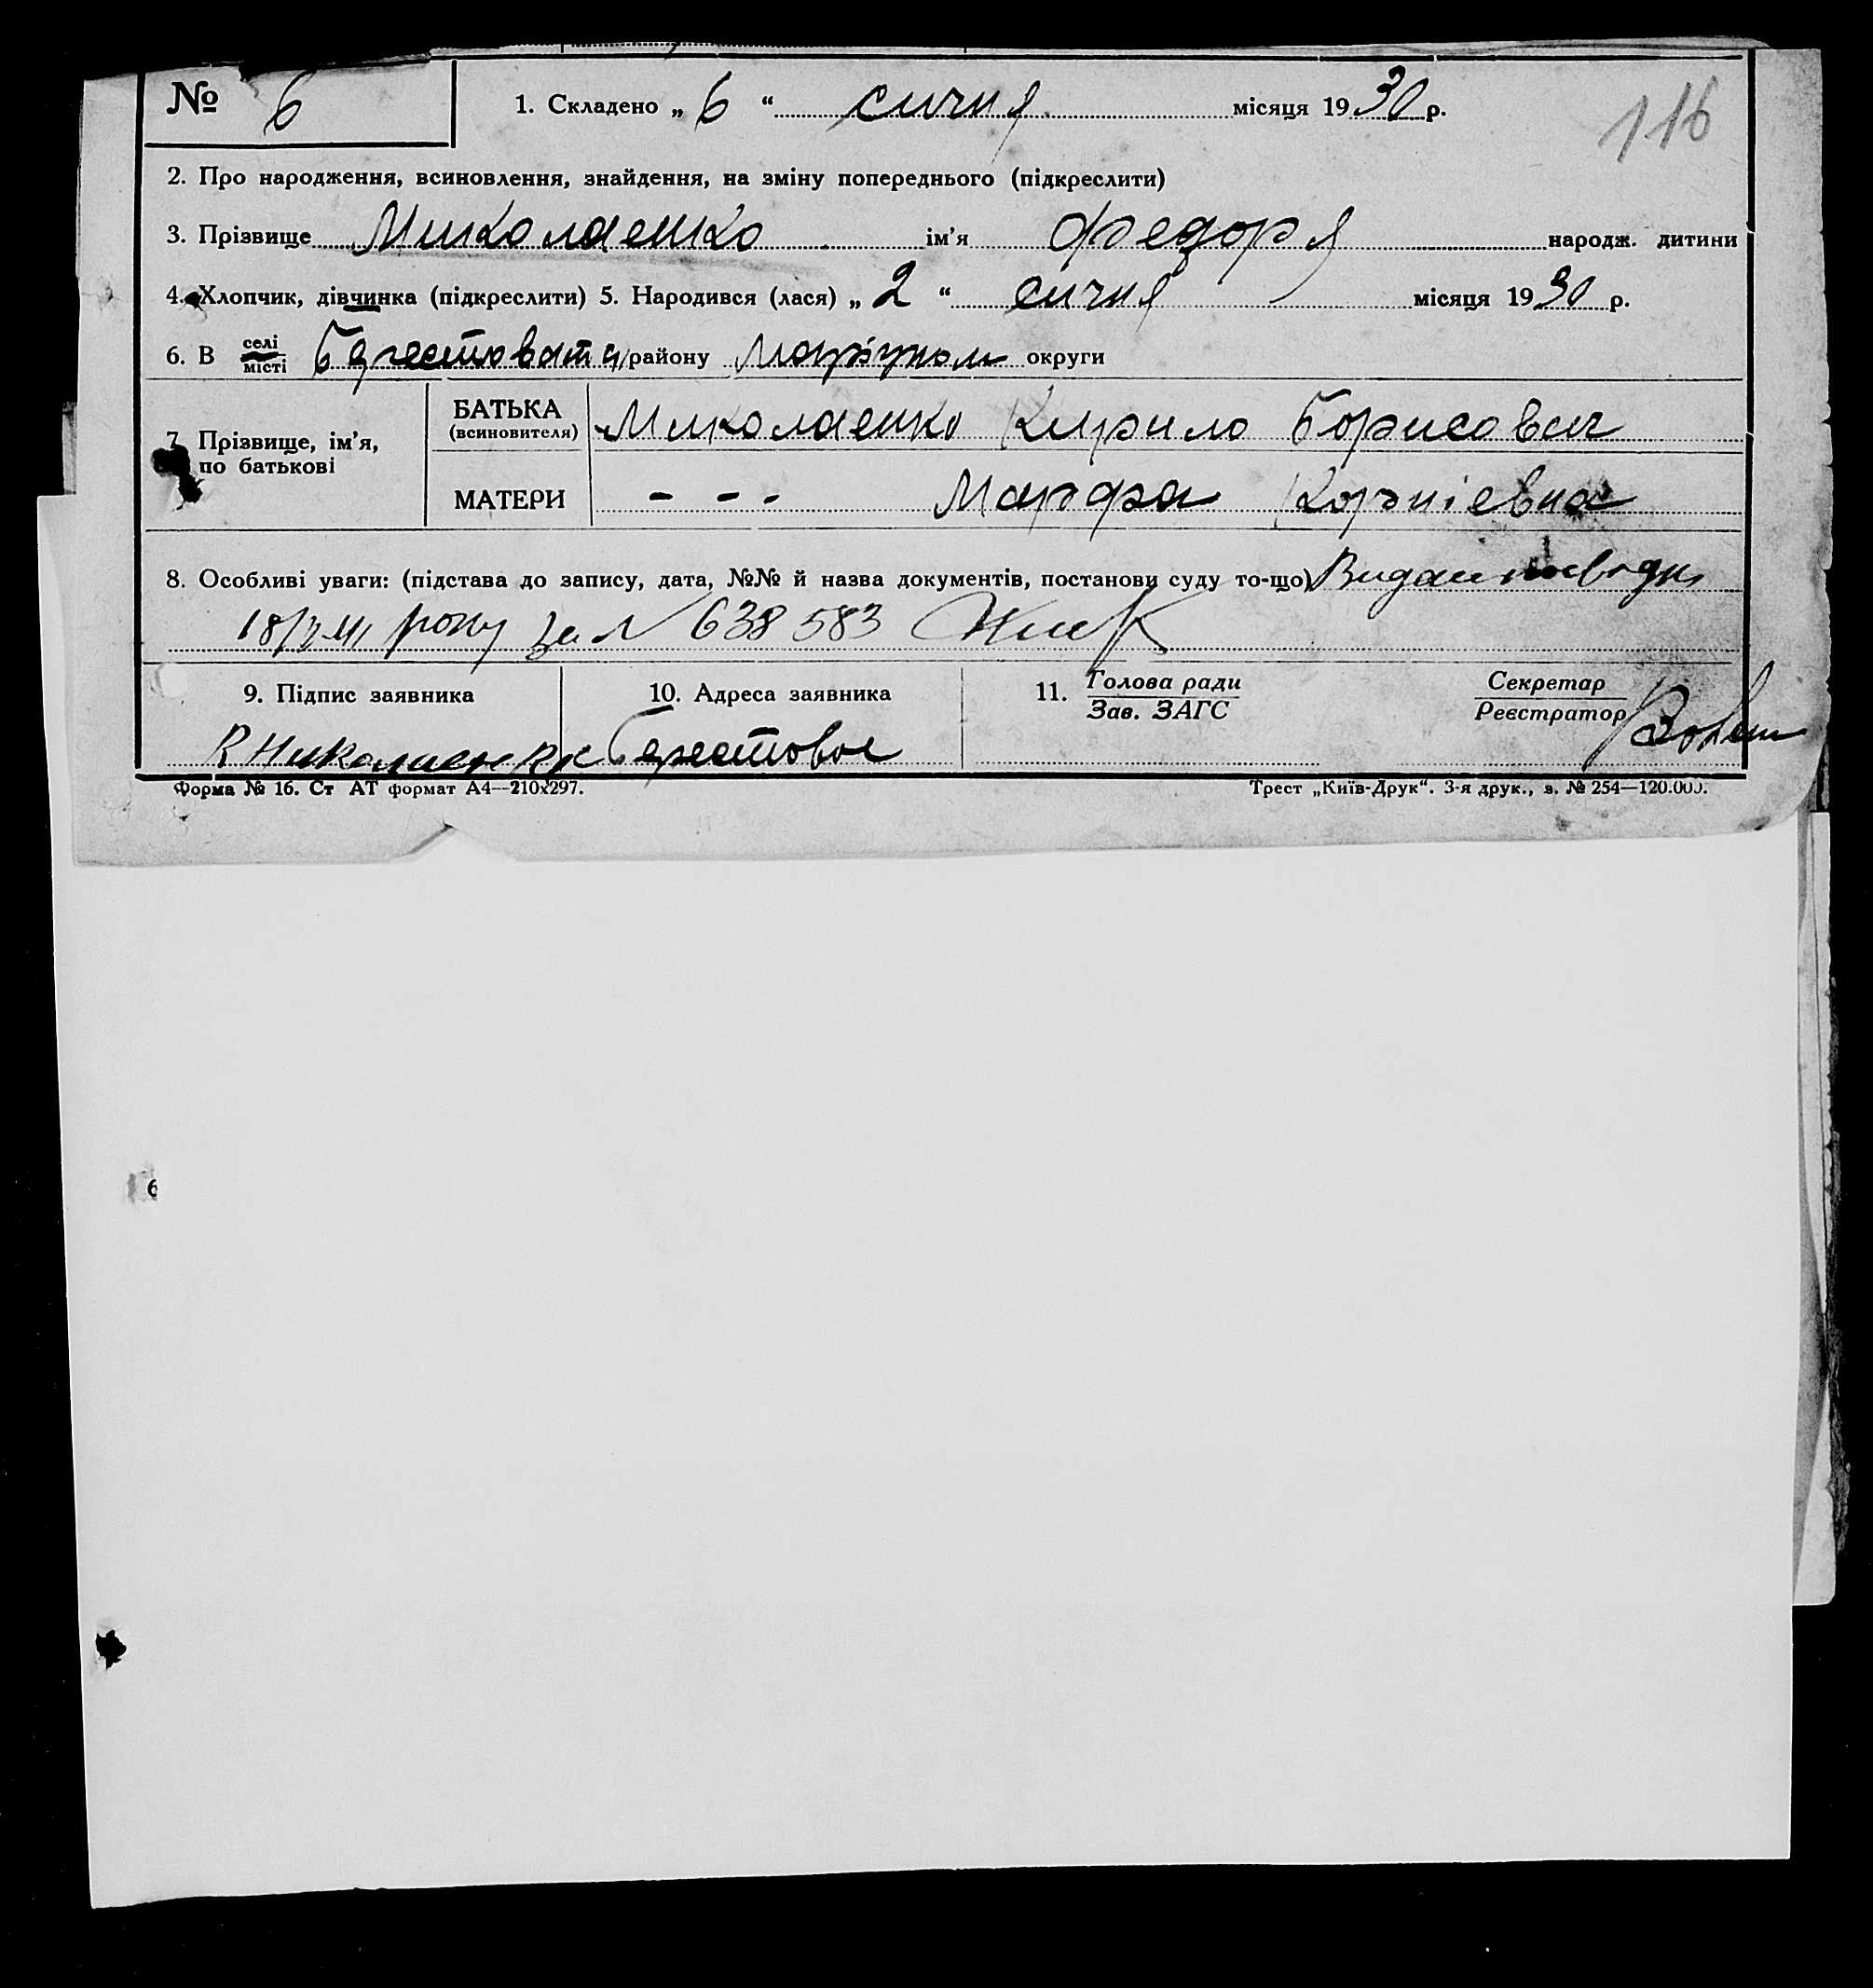 № 6
1. Складено „ 6 “ сичня місяця 1930 р.
116
2. Про народження, всиновлення, знайдення, на зміну попереднього (підкреслити)
3. Прізвище Миколаенко ім’я Федоря народж. дитини
4. Хлопчик, дівчинка (підкреслити) 5. Народився (лася) „ 2 “ сичня місяця 1930 р.
6. В селі місті району округи
7. Прізвище, ім’я, по батькові
БАТЬКА (всиновителя) Миколаенко Кирило Борисович
МАТЕРИ - - - Марфа Корніевна
8. Особливі уваги: (підстава до запису, дата, №№ й назва документів, постанови суду то-що)
року за № 638583
9. Підпис заявника 10. Адреса заявника 11. Голова ради Зав. ЗАГС Секретар Реєстратор
Берестовое
Форма № 16. Ст АТ формат А4—210х297. Трест „Київ-Друк“. 3-я друк., з. № 254—120.000.
6